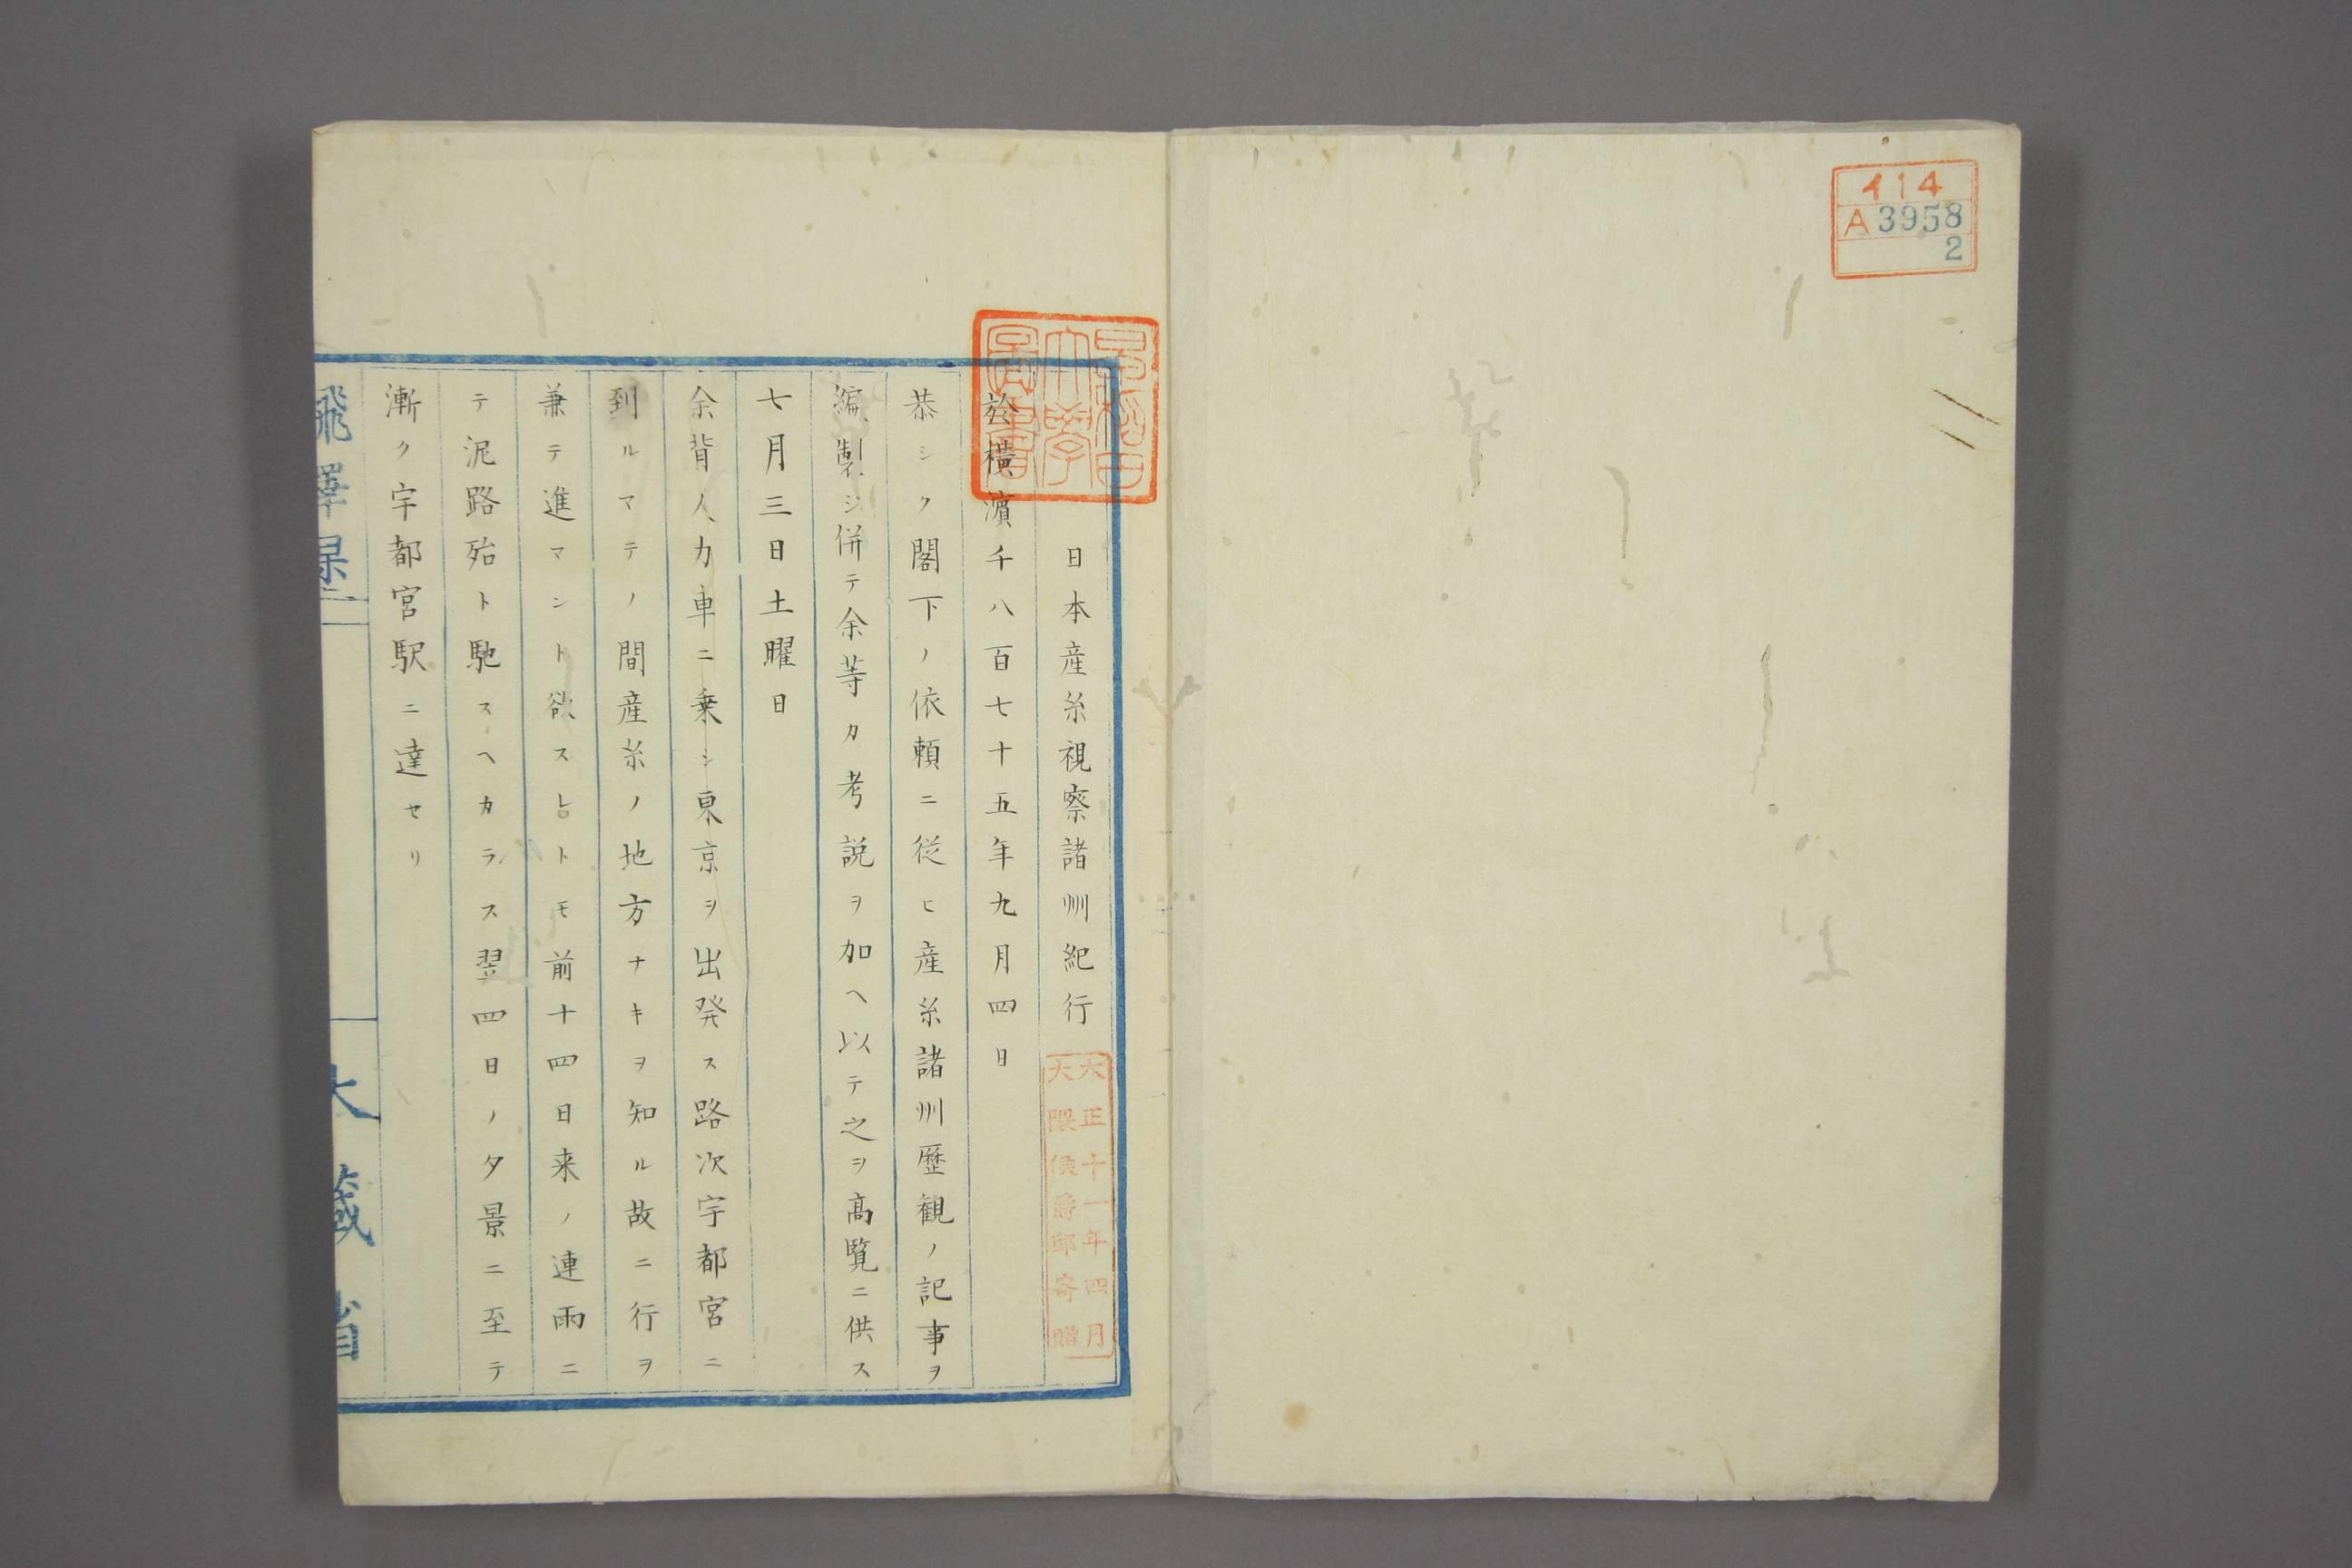 イ14
A3958
2
早稲田
大學
圖書
日本産糸視察諸州紀行
大正十一年四月
大隈侯爵邸寄贈
於横濱千八百七十五年九月四日
恭シク閣下ノ依頼ニ従ヒ産糸諸州歴観ノ記事ヲ
編製シ併テ余等カ考説ヲ加ヘ以テ之ヲ高覧ニ供ス
七月三日土曜日
余背人力車ニ乗シ東京ヲ出発ス路次宇都宮ニ
到ルマテノ間産糸ノ地方ナキヲ知ル故ニ行ヲ
兼テ進マント欲ストモ前十四日来ノ連雨ニ
テ泥路殆ト馳スヘカラス翌四日ノ夕景ニ至テ
漸ク宇都宮駅ニ達セリ
大蔵省